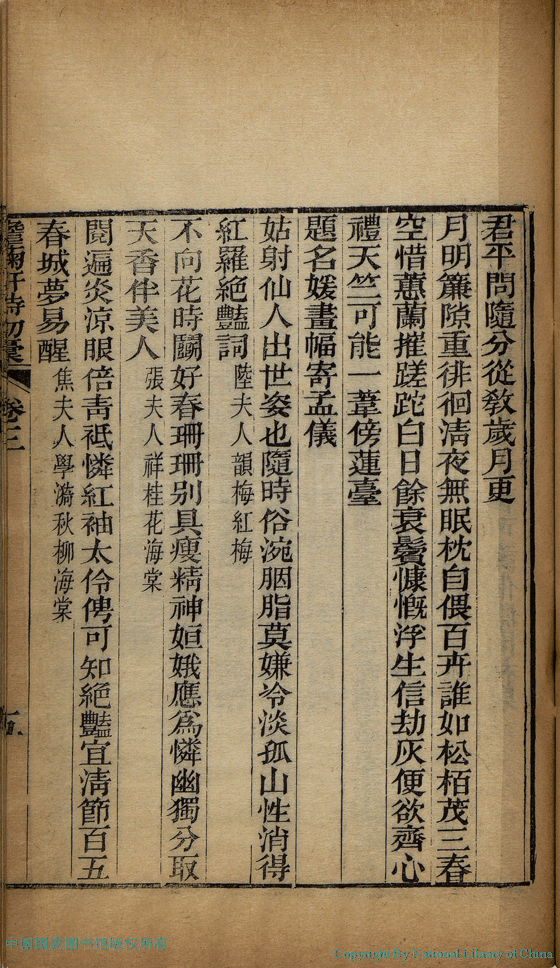 君平問隨分從教歲月更
月明簾隙重徘徊清夜無眠枕自偎百卉誰如松栢茂三春
空惜蕙蘭摧蹉跎白日餘衰鬢慷慨浮生信劫灰便欲齊心
禮天竺可能一葦傍蓮臺
題名媛畫幅寄孟儀
姑射仙人出世姿也隨時俗涴胭脂莫嫌冷淡孤山性消得
紅羅絶豔詞陸夫人韻梅紅梅
不向花時鬭好春珊珊别具瘦精神姮娥應爲憐幽獨分取
天香伴美人張夫人祥桂花海棠
閱遍炎涼眼倍青祗憐紅袖太伶俜可知絶豔宜清節百五
春城夢易醒焦夫人學漪秋柳海棠
卷三
五
中國國家圖書館版权所有
Copyright By National Library of China